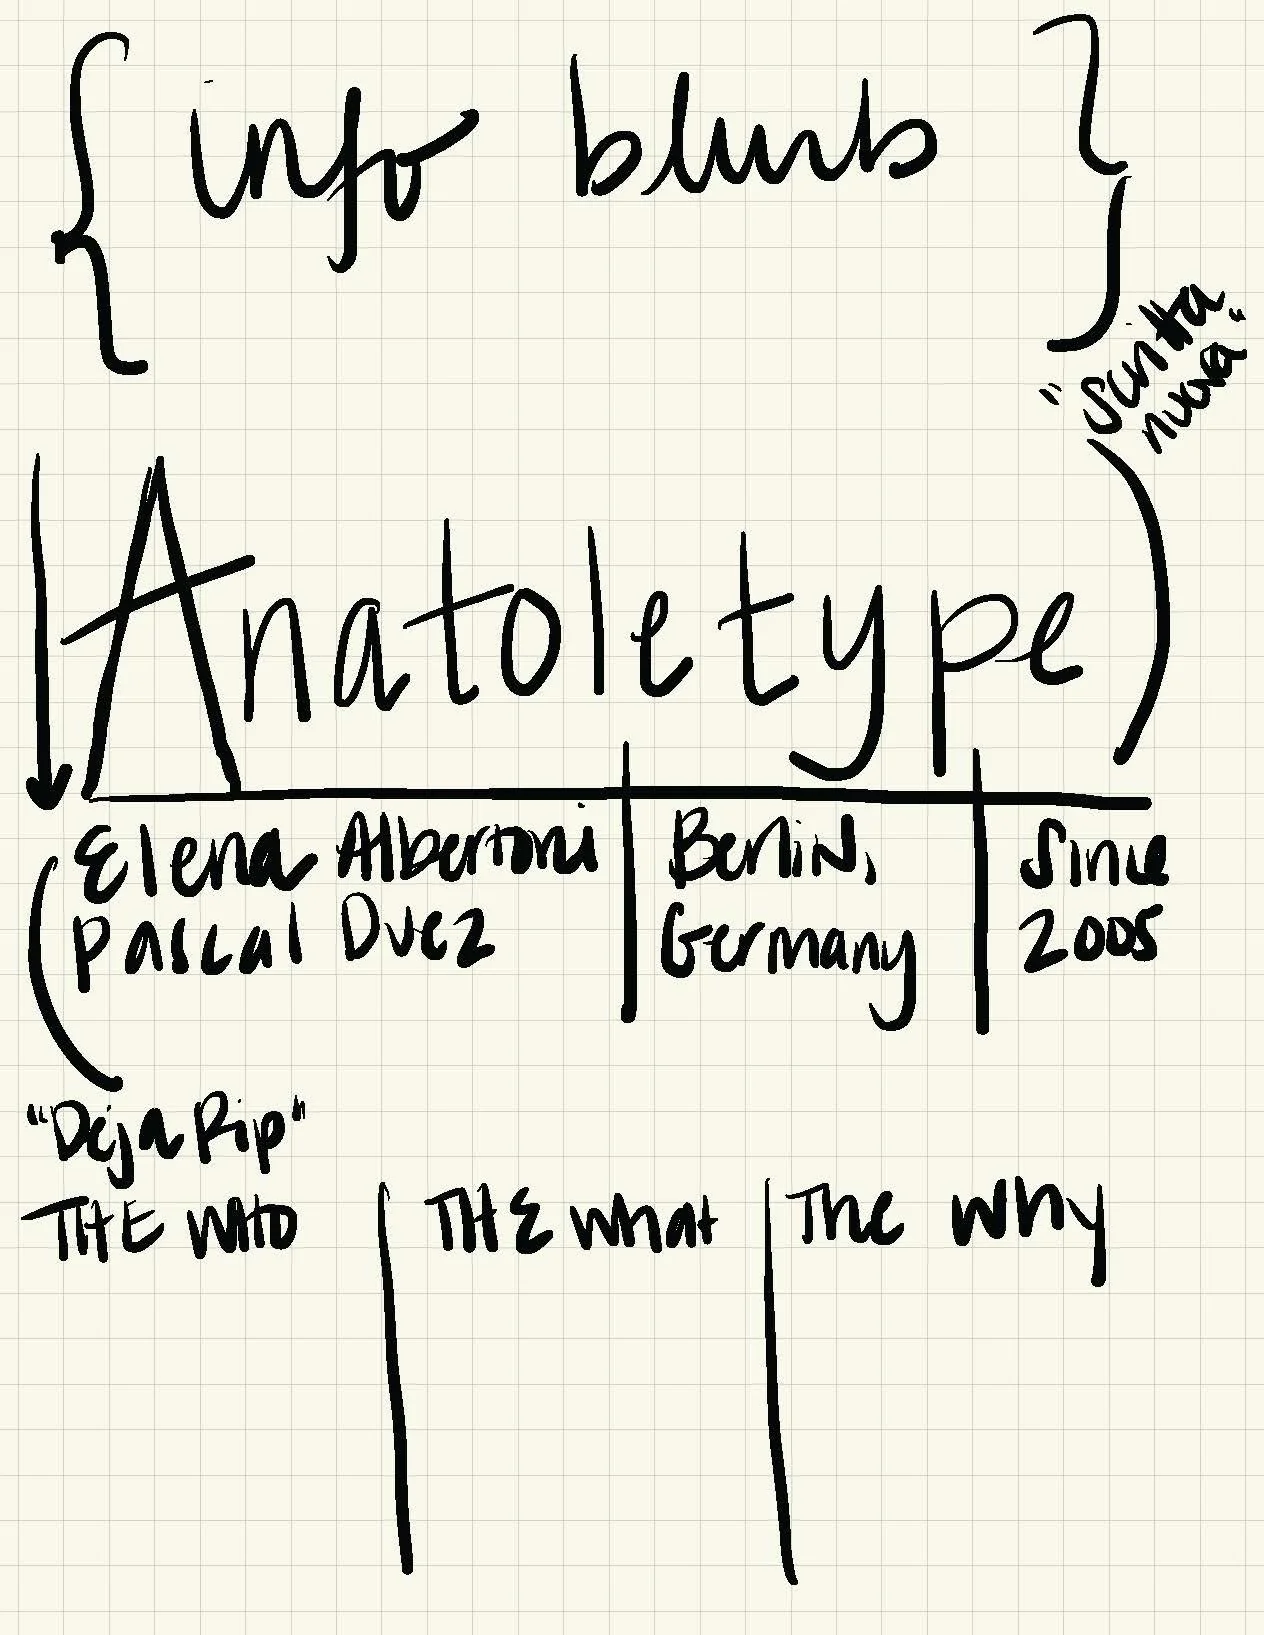 { info blurb }
"Scritta
nuova"
Anatoletype
Elena Albertoni | Berlin, | Since
Pascal Duez | Germany | 2005
"Deja Rip"
THE WHO | THE what | The why